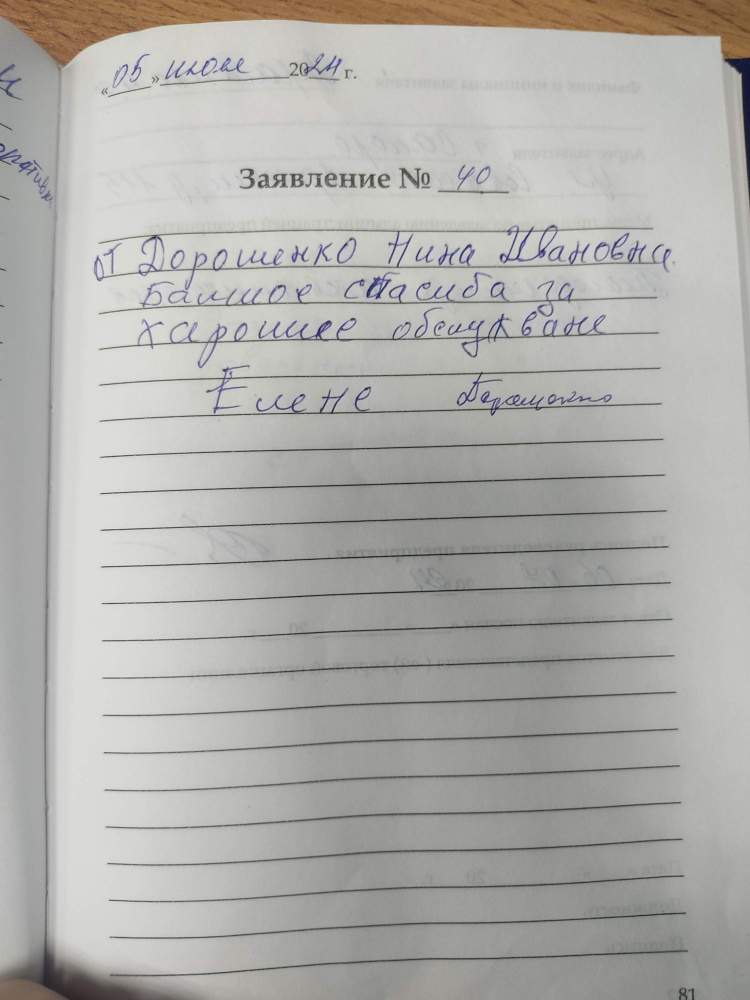 «05» июля 2024 г.
Заявление № 40
от Дорошенко Нина Ивановна.
Балшое спасиба за
харошее обслужване
Елене
81